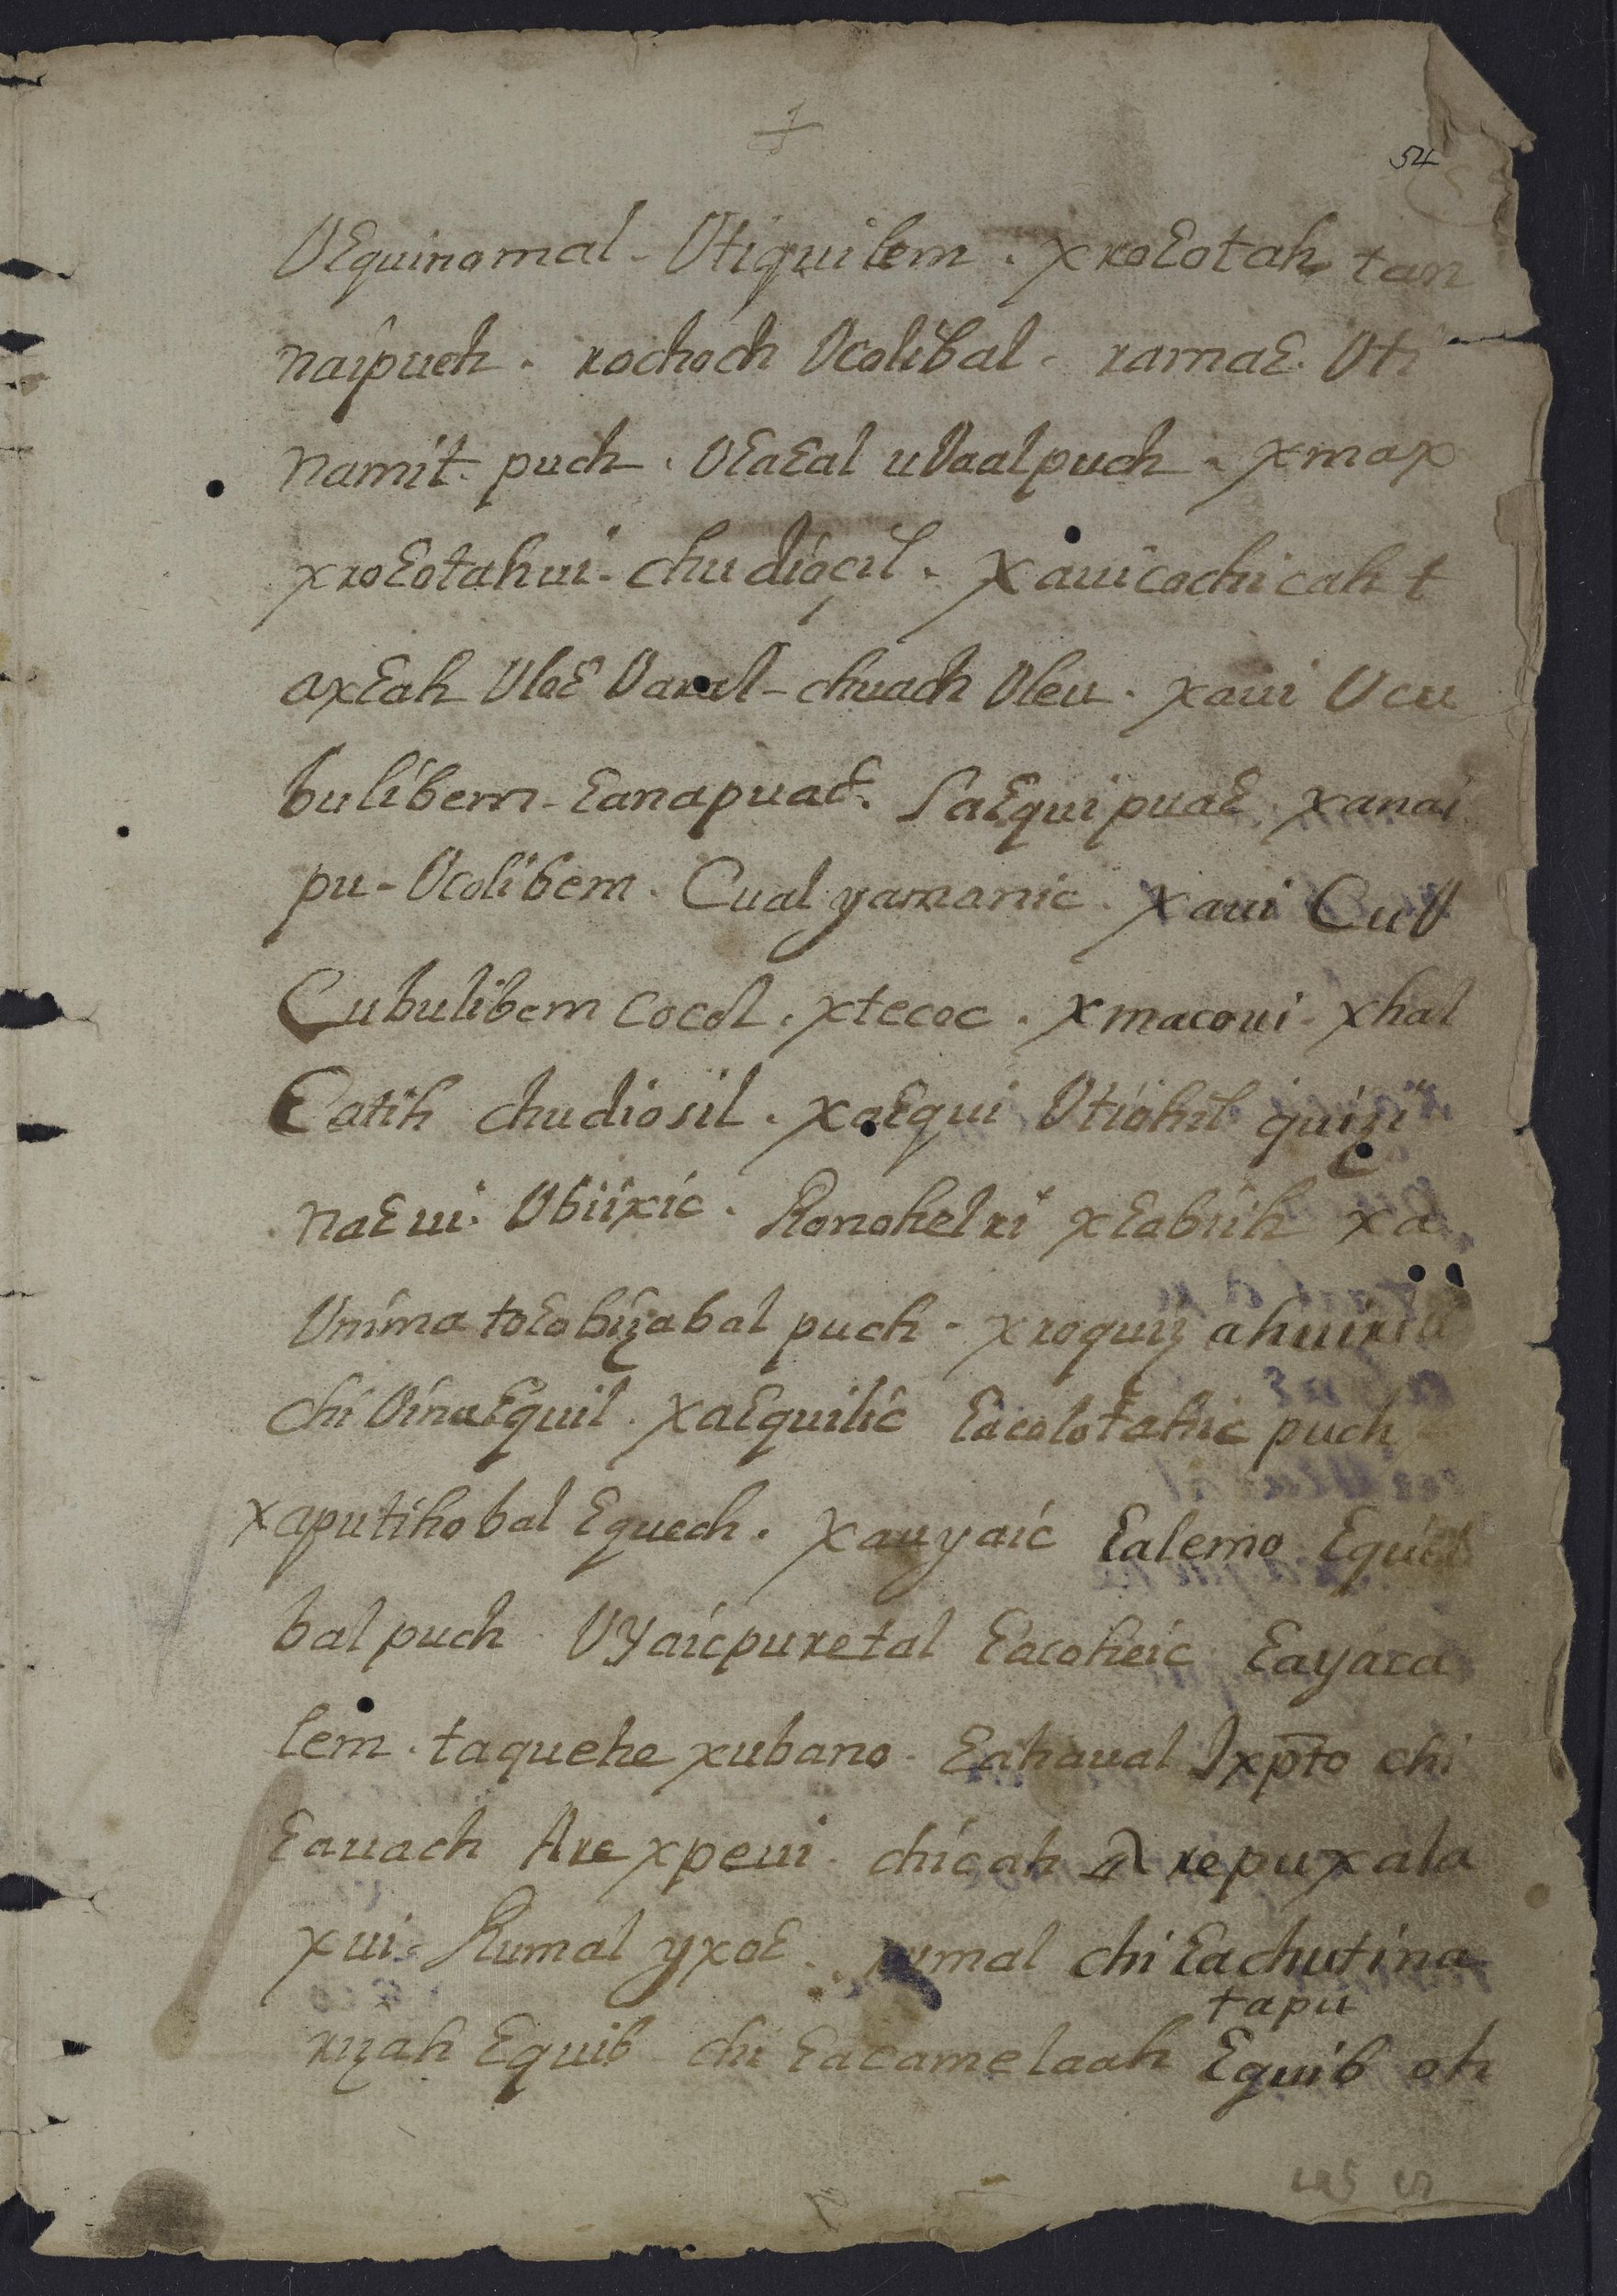 54
Vɛquinomal - Vtiquilem . xroɛotah tan
naipuch . rochoch Vcolibal . ramaɛ . Vti
namit . puch . Vɛaɛal uVaal puch . xmax
xroɛotahui - chudioçil . xauicochicah t
axɛah VloɛVaral - chuach Vleu . xaui Vcu
bulibem - ɛanapuaɛ . Saɛquipuaɛ . xanai
pu - Vcolibem . Cual yamanic . xaui CuV
Cubulibem cocol . xtecoc . xmacoui - xhal
ɛatih chudiosil . xaɛqui Vtiohil quiçi
naɛui . Vbiixic . Ronohel ri xɛabiih xa
Vnima toɛobiçabal puch - xroquiç ahuiri
chiVinaɛquil . xaɛquilic ɛacolotahic puch
xaputihobal ɛquech . xauyaic ɛalemo ɛquil
bal puch Vyaicpuretal ɛacoheic ɛayaca
lem . taquehe xubano - ɛahaual Jxp̄to chi
ɛauach Are xpeui chicah Arepuxala
xui - Rumal yxoɛ . rumal chiɛachutina
tapu
riçah ɛquib chi ɛacamelaah ɛquib oh